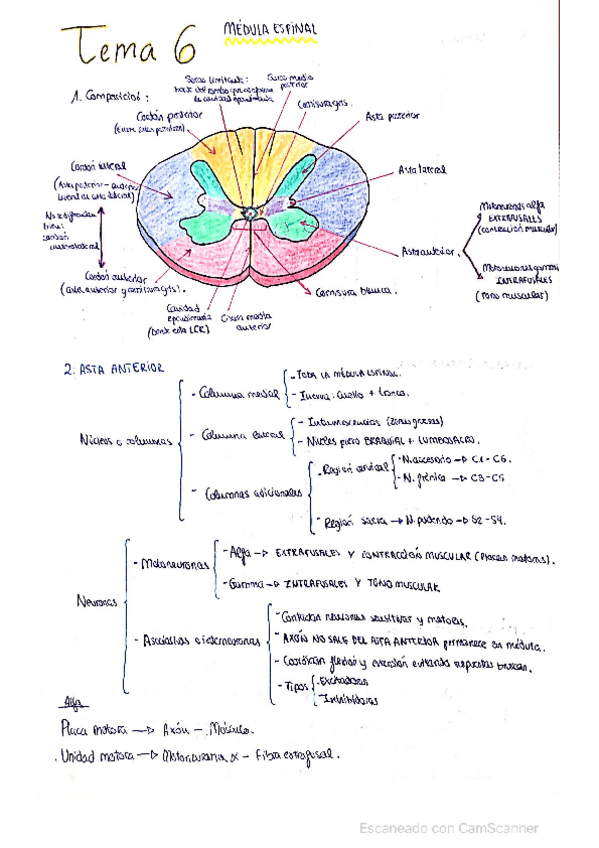 Tema 6
MÉDULA ESPINAL
1. Composición:
Surco limitante:
Surco medio
posterior
Comisura gris.
Cordón posterior
(entre astas posteriores)
Asta posterior
Cordón lateral
(Asta posterior - anterior
Asta lateral
cordón
anterolateral
Motoneuronas alfa
EXTRAFUSALES
(contracción muscular)
Asta anterior.
Motoneuronas gamma
INTRAFUSALES
(Tono muscular)
Cordón anterior
(asta anterior y comisura gris).
Comisura blanca.
Cavidad
ependimaria
(donde esta LCR)
Cisura media
anterior
2: ASTA ANTERIOR
Núcleos o columnas
- Columna medial
- TODA LA MÉDULA ESPINAL.
- Inerva: Cuello + tronco.
- Columna lateral
- Intumescencias (zonas gruesas)
- Niveles plexo BRAQUIAL + LUMBOSACRO.
- Columnas adicionales
- Región cervical
- N. accesorio → C1-C6.
- N. frénico → C3-C5
- Región sacra → N. pudendo → S2-S4.
Neuronas
- Motoneuronas
- Alfa → EXTRAFUSALES Y CONTRACCIÓN MUSCULAR (Placas motoras).
- Gamma → INTRAFUSALES Y TONO MUSCULAR
- Asociativas o interneuronas
- Conectan neuronas sensitivas y motoras.
- AXÓN NO SALE DEL ASTA ANTERIOR permanece en médula.
- Coordinan flexión y extensión evitando respuestas bruscas.
- Tipos
- Excitadoras
- Inhibidoras
Alfa
Placa motora → Axón - Músculo.
. Unidad motora → Motoneurona α - Fibra extrafusal.
Escaneado con CamScanner